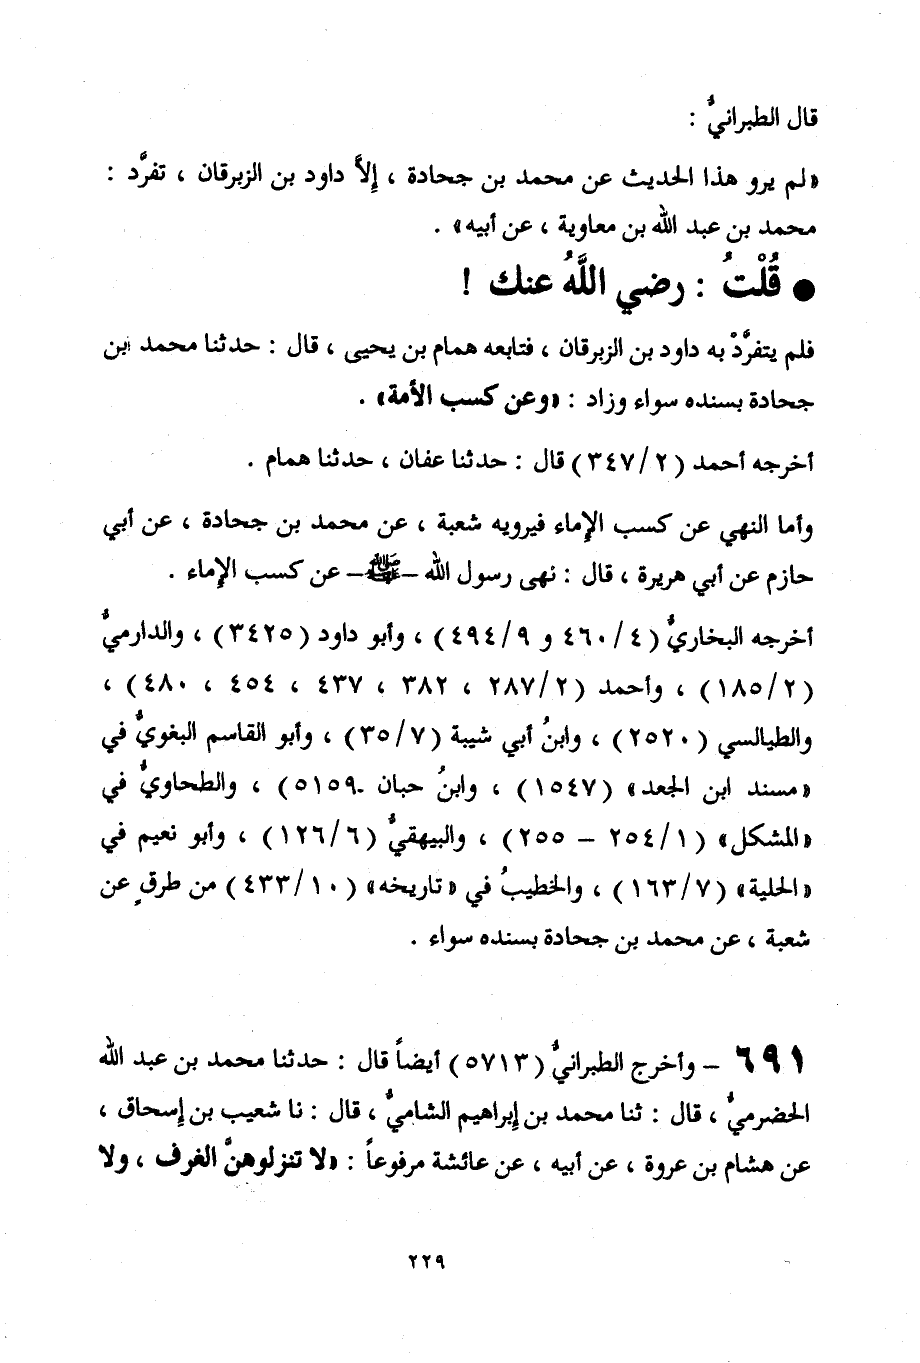 قال الطبرانيُّ :
«لم يرو هذا الحديث عن محمد بن جحادة ، إلاَّ داود بن الزبرقان ، تفرَّد :
محمد بن عبد الله بن معاوية ، عن أبيه» .
● قُلْتُ : رضي اللَّهُ عنك !
فلم يتفرَّدْ به داود بن الزبرقان ، فتابعه همام بن يحيى ، قال : حدثنا محمد ابن
جحادة بسنده سواء وزاد : «وعن كسب الأمة» .
أخرجه أحمد (٣٤٧/٢) قال : حدثنا عفان ، حدثنا همام .
وأما النهي عن كسب الإماء فيرويه شعبة ، عن محمد بن جحادة ، عن أبي
حازم عن أبي هريرة ، قال : نهى رسول الله –ﷺ– عن كسب الإماء .
أخرجه البخاريُّ (٤٦٠/٤ و ٤٩٤/٩) ، وأبو داود (٣٤٢٥) ، والدارميُّ
(١٨٥/٢) ، وأحمد (٢٨٧/٢ ، ٣٨٢ ، ٤٣٧ ، ٤٥٤ ، ٤٨٠) ،
والطيالسي (٢٥٢٠) ، وابنُ أبي شيبة (٣٥/٧) ، وأبو القاسم البغويُّ في
«مسند ابن الجعد» (١٥٤٧) ، وابنُ حبان ـ٥١٥٩) ، والطحاويُّ في
«المشكل» (٢٥٤/١ – ٢٥٥) ، والبيهقيُّ (١٢٦/٦) ، وأبو نعيم في
«الحلية» (١٦٣/٧) ، والخطيبُ في «تاريخه» (٤٣٣/١٠) من طرقٍ عن
شعبة ، عن محمد بن جحادة بسنده سواء .
٦٩١ – وأخرج الطبرانيُّ (٥٧١٣) أيضاً قال : حدثنا محمد بن عبد الله
الحضرميُّ ، قال : ثنا محمد بن إبراهيم الشاميُّ ، قال : نا شعيب بن إسحاق ،
عن هشام بن عروة ، عن أبيه ، عن عائشة مرفوعاً : «لا تنزلوهنَّ الغرف ، ولا
٢٢٩